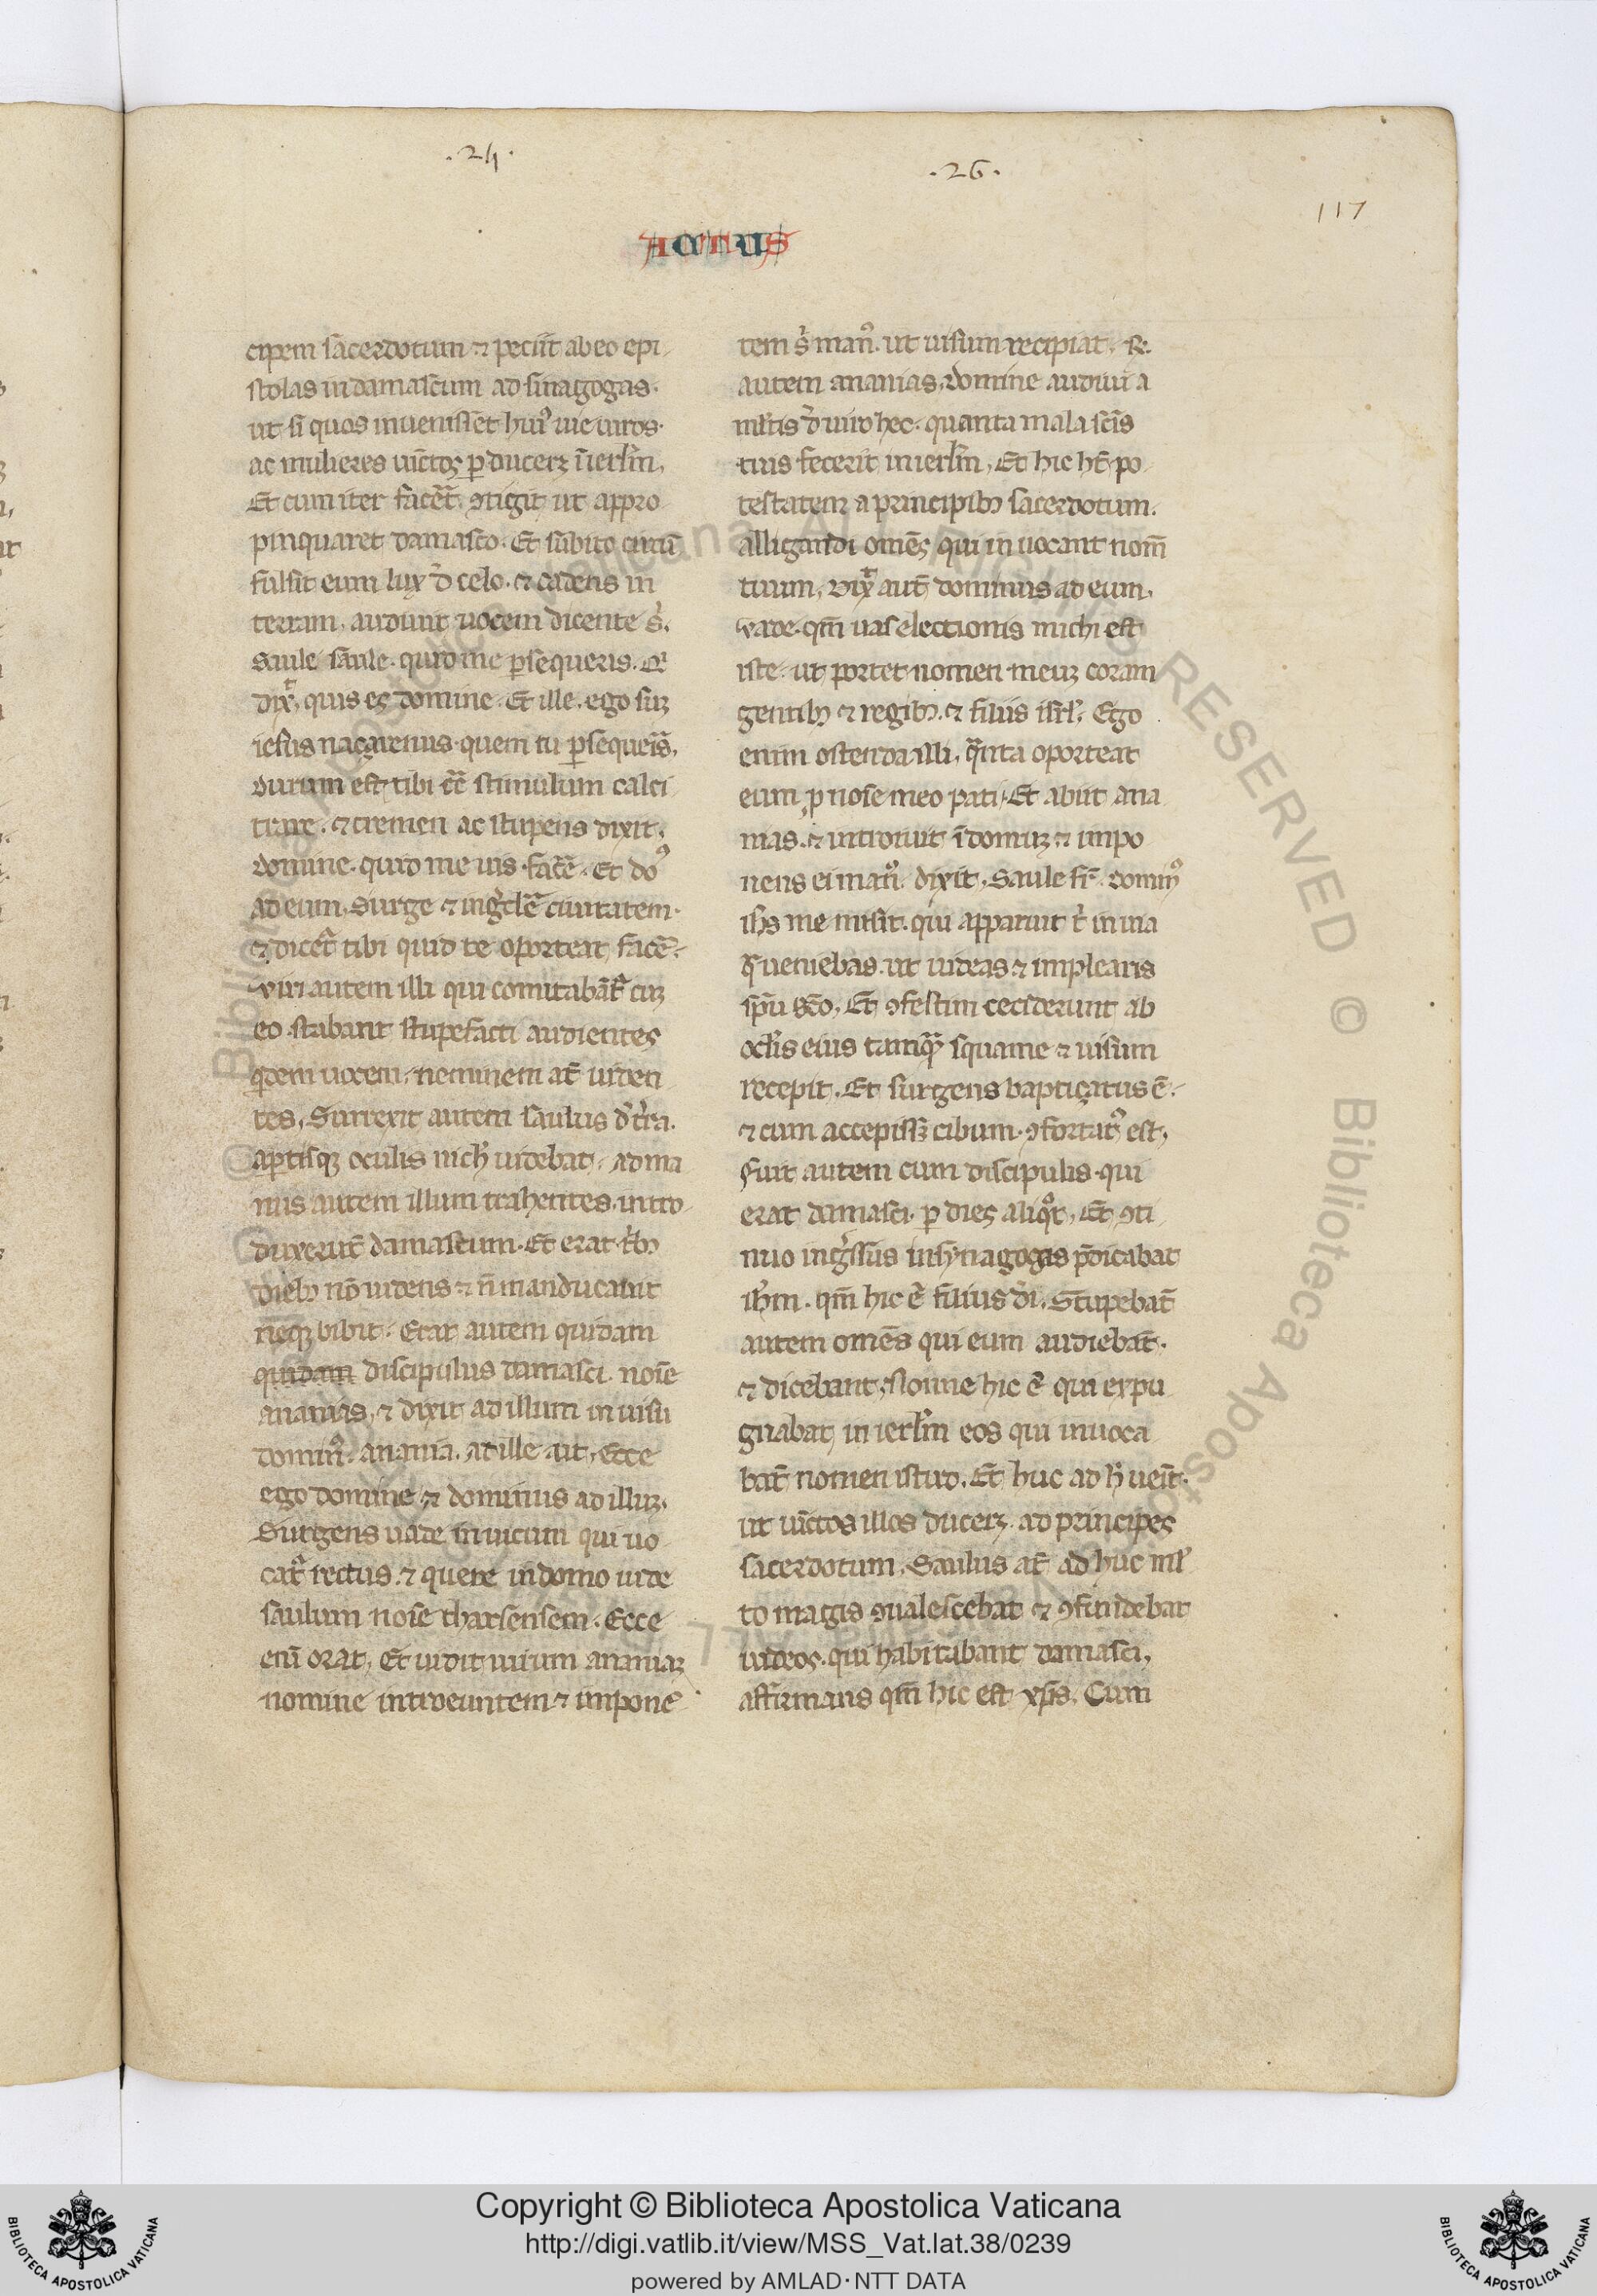 .24.
.26.
117
ACTUS
cipem sacerdotum ⁊ peciit ab eo epi
stolas in damascum ad sinagogas.
ut si quos inuenisset huiꝰ uie uiros.
ac mulieres uinctos ꝑduceꝫ ī ierlm̄.
Et cum iter facet̄ ꝯtigit ut appro
pinquaret damasco. Et subito circū
fulsit eum lux d̄ celo. ⁊ cadens in
terram. audiuit uocem dicente s̄.
Saule saule. quid me ꝑsequeris. Q
dixͭ, quis es domine. Et ille. ego suꝫ
iesus naçarenus quem tu ꝑsequeris,
durum est tibi cc̄ stimulum calci
trare. ⁊ tremen ac stupens dixit.
domine. quid me uis facē. Et doꝰ
ad eum. Surge ⁊ ingdē ciuitatem.
⁊ dicet̄ tibi quid te oporteat facē.
viri autem illi qui comitabāt̄ cuꝫ
eo stabant stupefacti audientes
q̇dem uocem. neminem at̄ uiden
tes. Surrexit autem saulus d̄ t̄ra.
aꝑtisqꝫ oculis nich̄ uidebat. ad ma
nus autem illum trahentes. intro
duxerūt damascum. Et erat t̄bꝫ
diebꝫ nō uidens ⁊ n̄ manducauit
neqꝫ bibit. Erat autem quidam
quidam discipulus damasci. noīe
ananias. ⁊ dixit ad illum in uisu
dominꝰ. anania. at ille ait. Ecce
ego domine. ⁊ dominus ad illuꝫ.
Surgens uade in uicum qui uo
cat̄ rectus. ⁊ quere in domo iude
saulum noīe tharsensem. Ecce
enī orat. Et uidit uirum ananiaꝫ
nomine introeuntem ⁊ imponē
tem s̄ manꝰ. ut uisum recipiat. R.
autem ananias. domine audiui a
mltis d̄ uiro hec. quanta mala scīs
tuis fecerit in ierlm̄. Et hic ht̄ po
testatem a principibꝫ sacerdotum.
alligandi omēs qui inuocant nom̄
tuum. Dixͭ aut̄ dominus ad eum.
vade. qm̄ uas electionis michi est
iste. ut portet nomen meuꝫ coram
gentibꝫ ⁊ regibꝫ. ⁊ filiis isrl̄. Ego
enim ostendā illi. qͣnta oporteat
eum ꝓ noīe meo pati. Et abiit ana
nias. ⁊ introiuit ī domuꝫ ⁊ impo
nens ei manꝰ. dixit. Saule fr̄. dominꝰ
ihs me misit. qui apparuit t̄ in uia
qͣ ueniebas. ut uideas ⁊ implearis
spū scō. Et ꝯfestim ceciderunt ab
oclis eius tamqͣ squame ⁊ uisum
recepit. Et surgens baptiçatus ē.
⁊ cum accepissꝫ cibum. ꝯfortatꝰ est.
Fuit autem cum discipulis qui
erat damasci. ꝑ dies aliqͦt. Et ꝯti
nuo ingssus in synagogas p̄dicabat
ihm̄. qm̄ hic ē filius dī. Stupebāt
autem omēs qui eum audiebāt.
⁊ dicebant. Nonne hic ē qui expu
gnabat in ierlm̄ eos qui inuoca
bāt nomen istud. Et huc ad h̄ uēit.
ut uīctos illos duceꝫ ad principes
sacerdotum. Saulus at̄ ad huc ml̄
to magis ꝯualescebat ⁊ ꝯfundebat
iudeos. qui habitabant damasci,
affirmans qm̄ hic est xp̄s. Cum
Copyright © Biblioteca Apostolica Vaticana
http://digi.vatlib.it/view/MSS_Vat.lat.38/0239
powered by AMLAD·NTT DATA
BIBLIOTECA APOSTOLICA VATICANA
BIBLIOTECA APOSTOLICA VATICANA